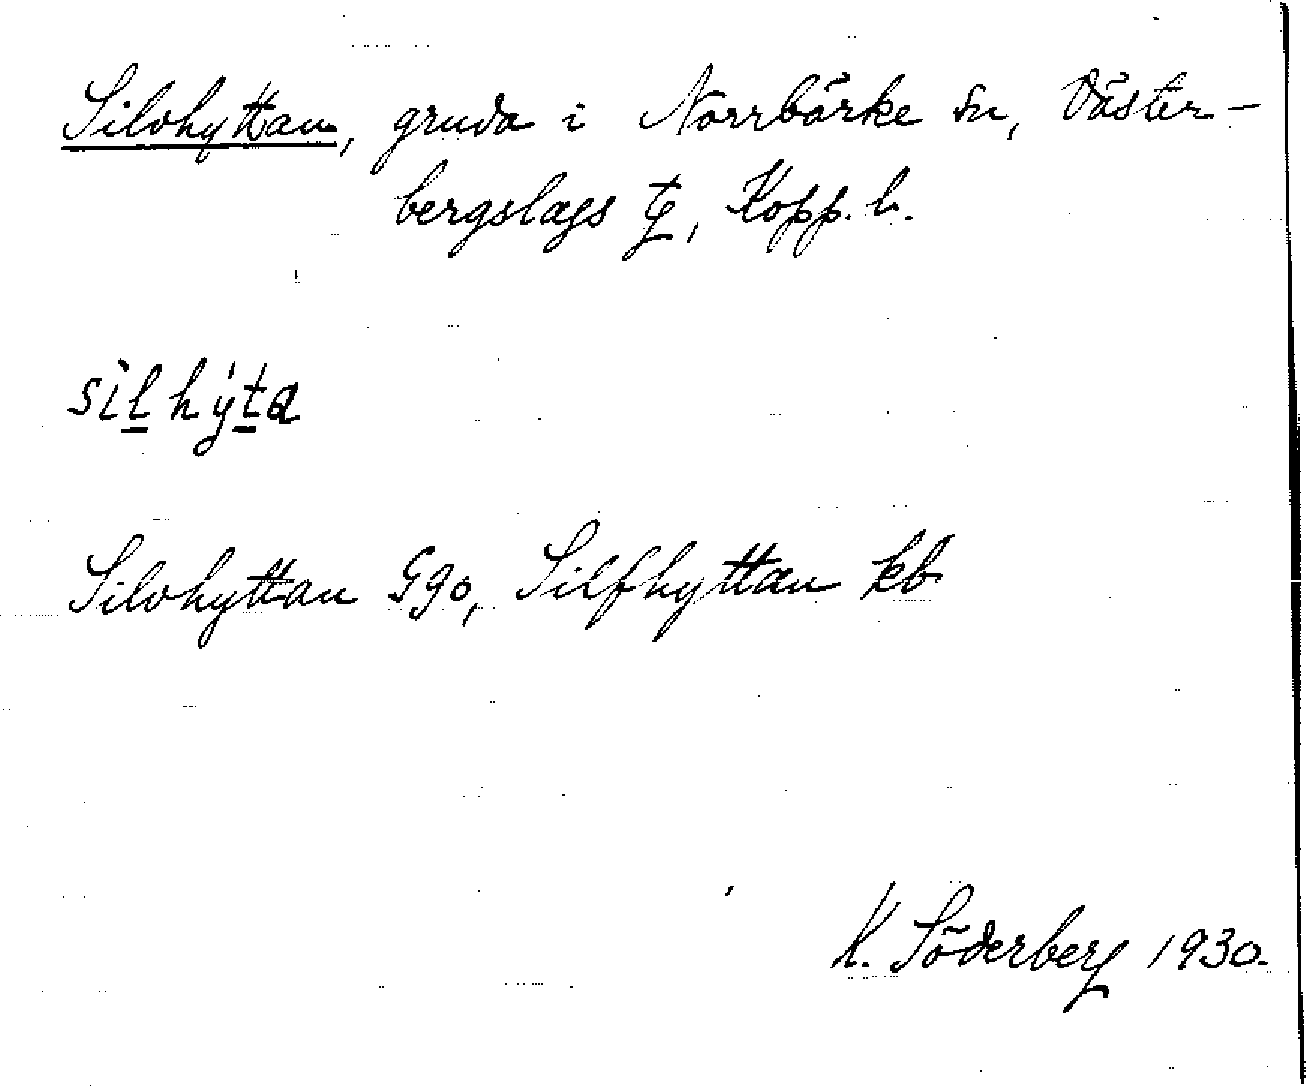 Silvhyttan, gruva i Norrbärke sn, Väster-
bergslags tg, Kopp. l.
sìlhýta
Silvhyttan Ggo, Silfhyttan kb
K. Söderberg 1930.